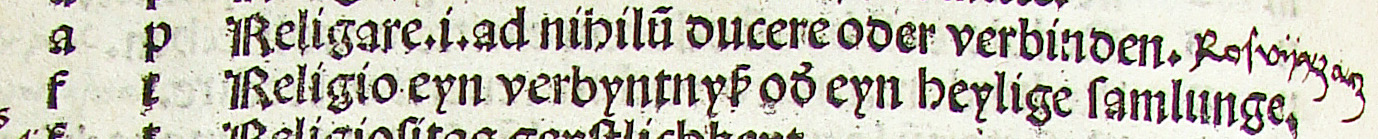 a p Religare.i.ad nihilū ducere oder verbinden.
f t Religio eyn verbyntnyß od̄ eyn heylige ſamlunge.
Religioſitas geyſtlichkeyt